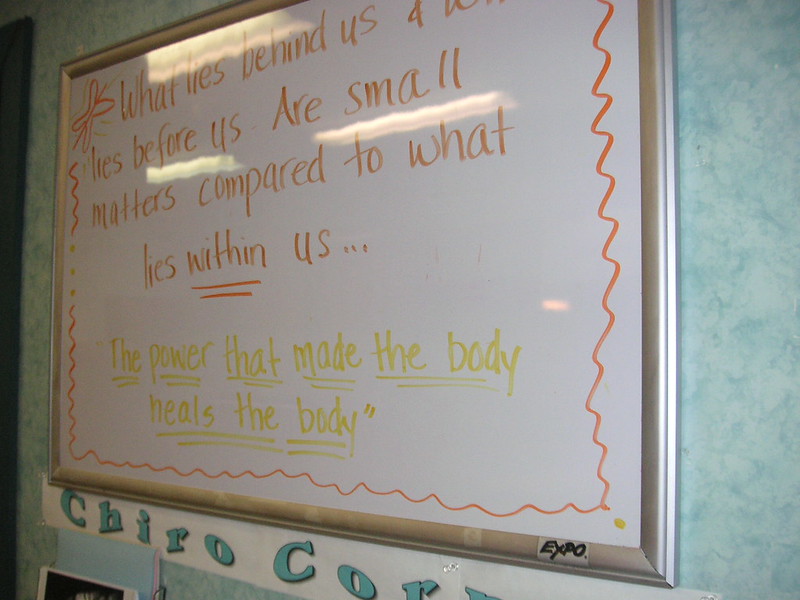 What lies behind us &
lies before us. Are small
matters compared to what
lies within us...
The power that made the body
heals the body"
EXPO
Chiro Corn